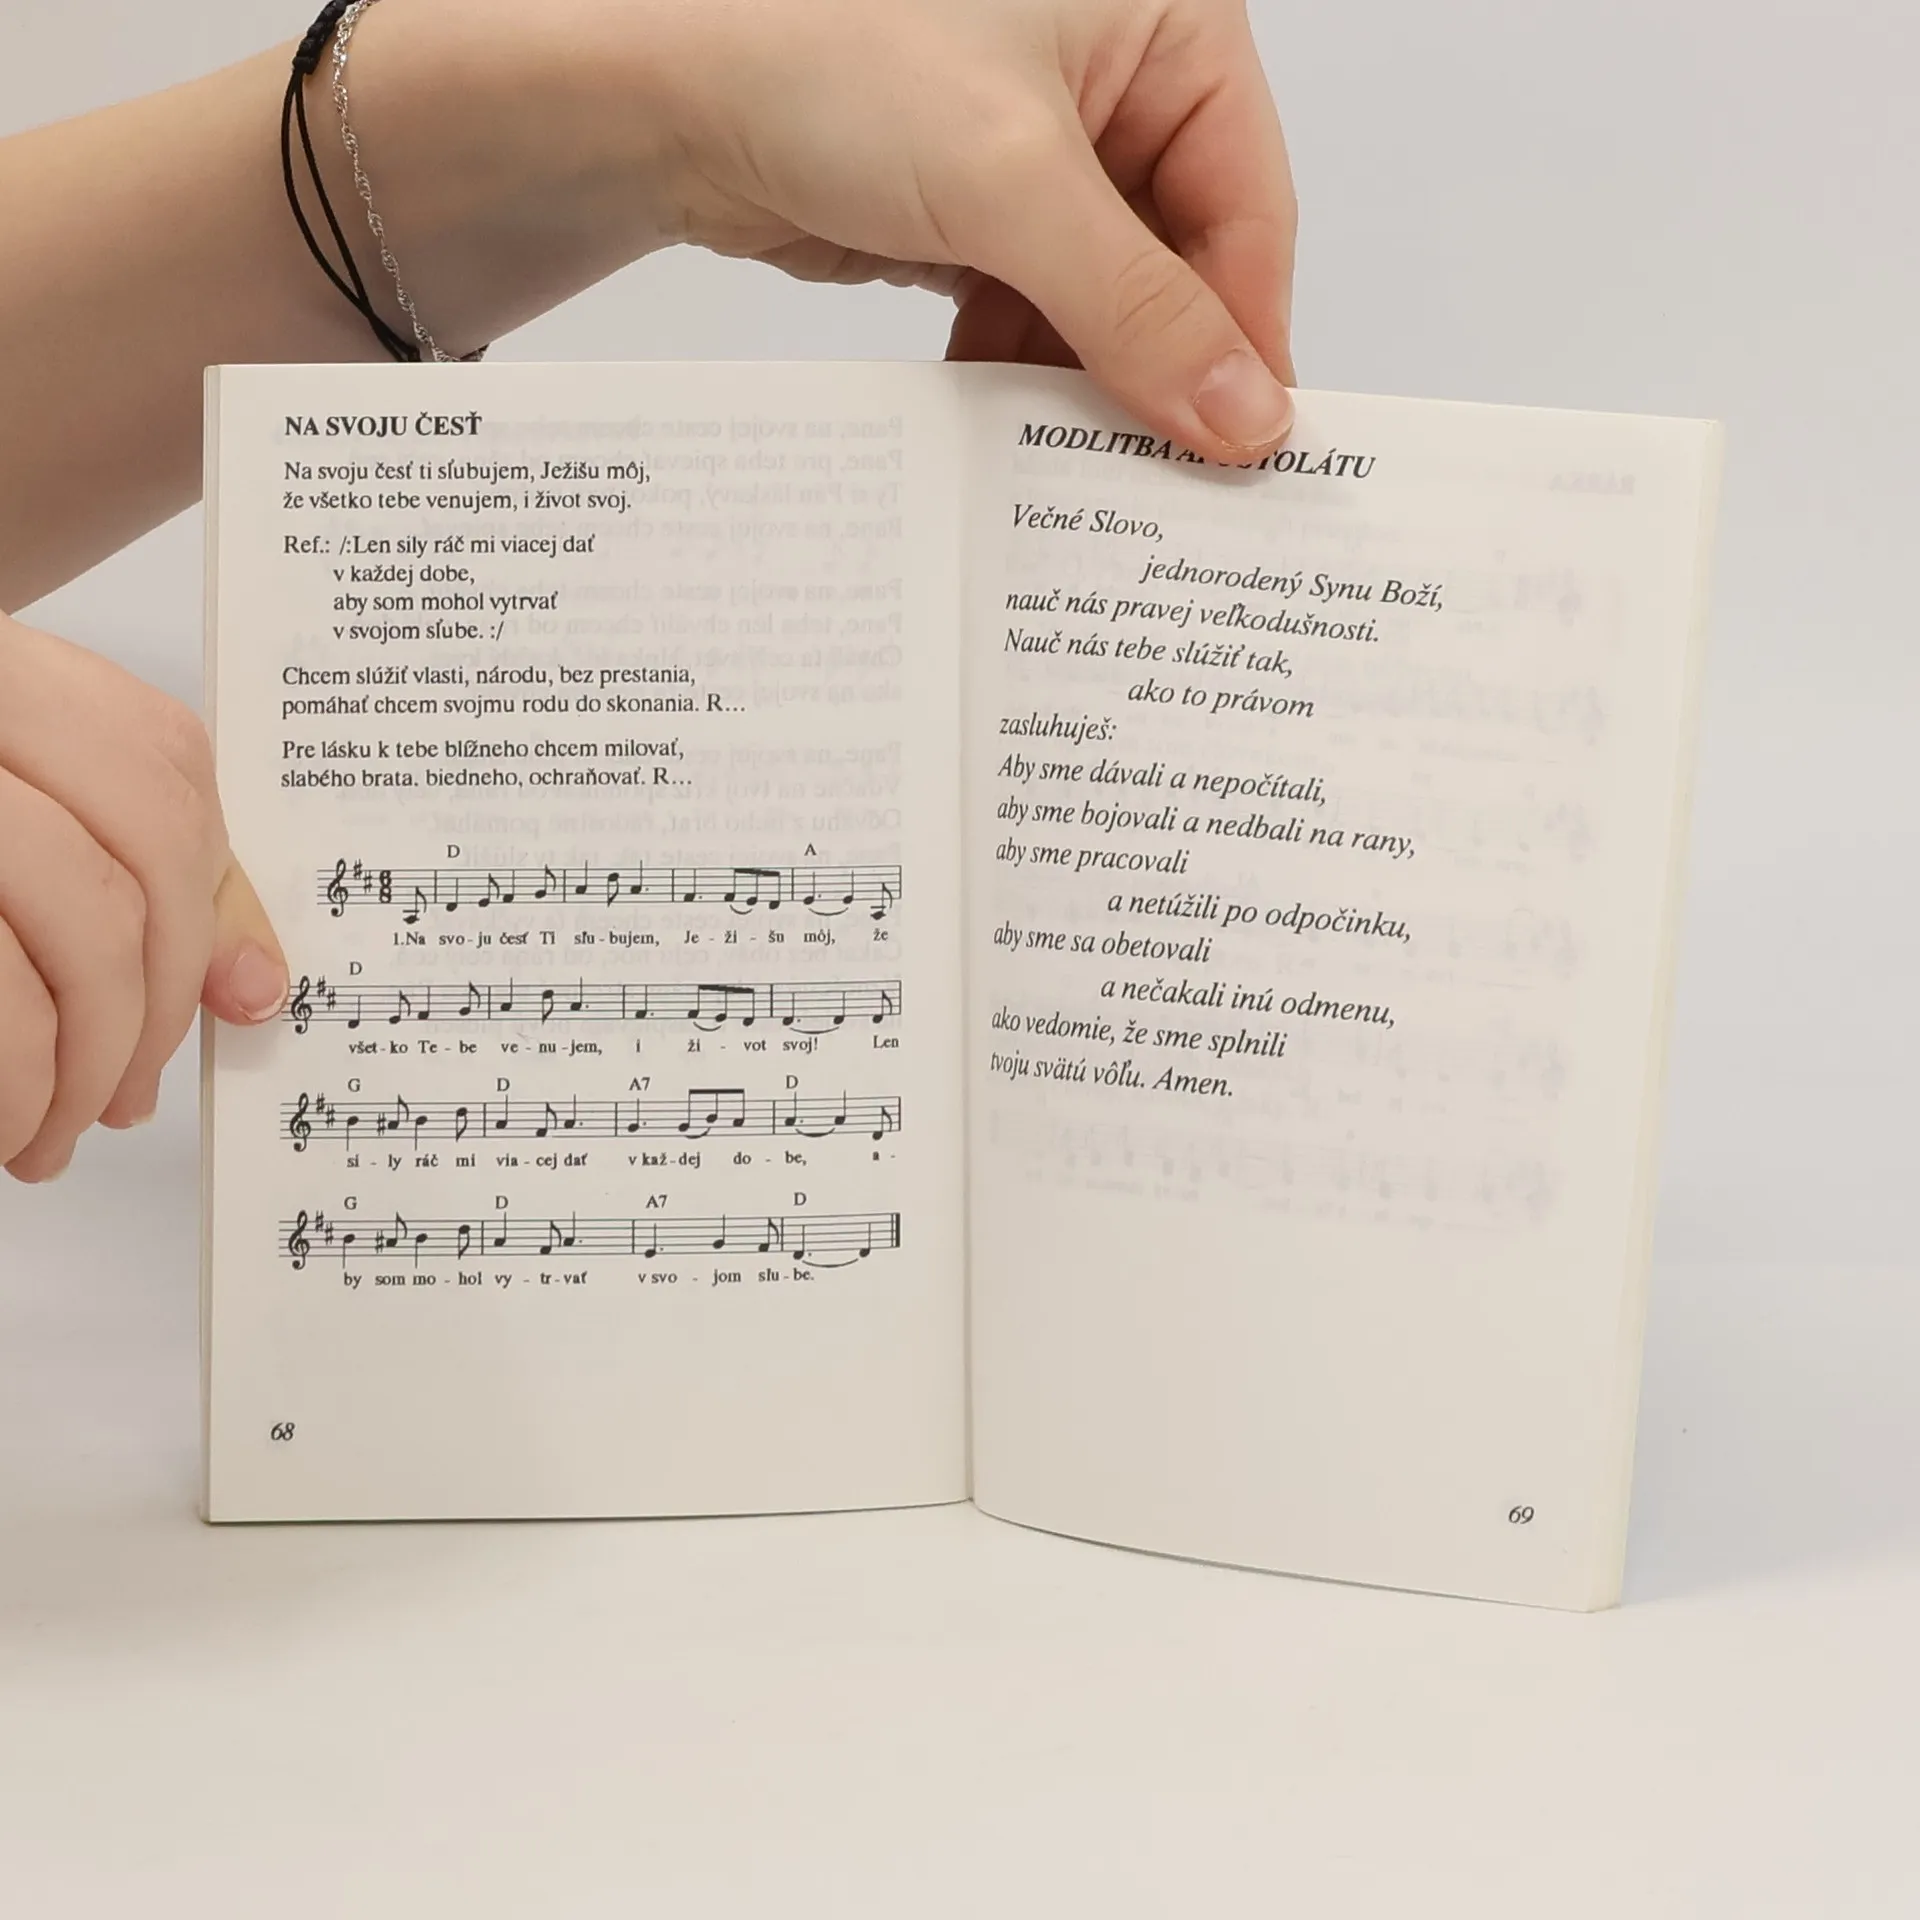 NA SVOJU ČESŤ
Na svoju česť ti sľubujem, Ježišu môj,
že všetko tebe venujem, i život svoj.
Ref.: /:Len sily ráč mi viacej dať
v každej dobe,
aby som mohol vytrvať
v svojom sľube. :/
Chcem slúžiť vlasti, národu, bez prestania,
pomáhať chcem svojmu rodu do skonania. R...
Pre lásku k tebe blížneho chcem milovať,
slabého brata. biedneho, ochraňovať. R...
D A
1.Na svo-ju česť Ti sľu-bujem, Je - ži - šu môj, že
D
všet-ko Te - be ve - nu-jem, i ži - vot svoj! Len
G D A7 D
si - ly ráč mi via - cej dať v kaž-dej do - be, a -
G D A7 D
by som mo - hol vy - tr-vať v svo - jom sľu - be.
68
MODLITBA
Večné Slovo,
jednorodený Synu Boží,
nauč nás pravej veľkodušnosti.
Nauč nás tebe slúžiť tak,
ako to právom
zasluhuješ:
Aby sme dávali a nepočítali,
aby sme bojovali a nedbali na rany,
aby sme pracovali
a netúžili po odpočinku,
aby sme sa obetovali
a nečakali inú odmenu,
ako vedomie, že sme splnili
tvoju svätú vôľu. Amen.
69